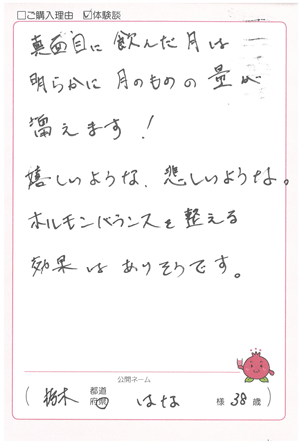 □ご購入理由 ☑体験談
真面目に飲んだ月は
明らかに月のものの量が
増えます!
嬉しいような、悲しいような。
ホルモンバランスを整える
効果はありそうです。
公開ネーム
(栃木 都道府県 はな 様 38歳)